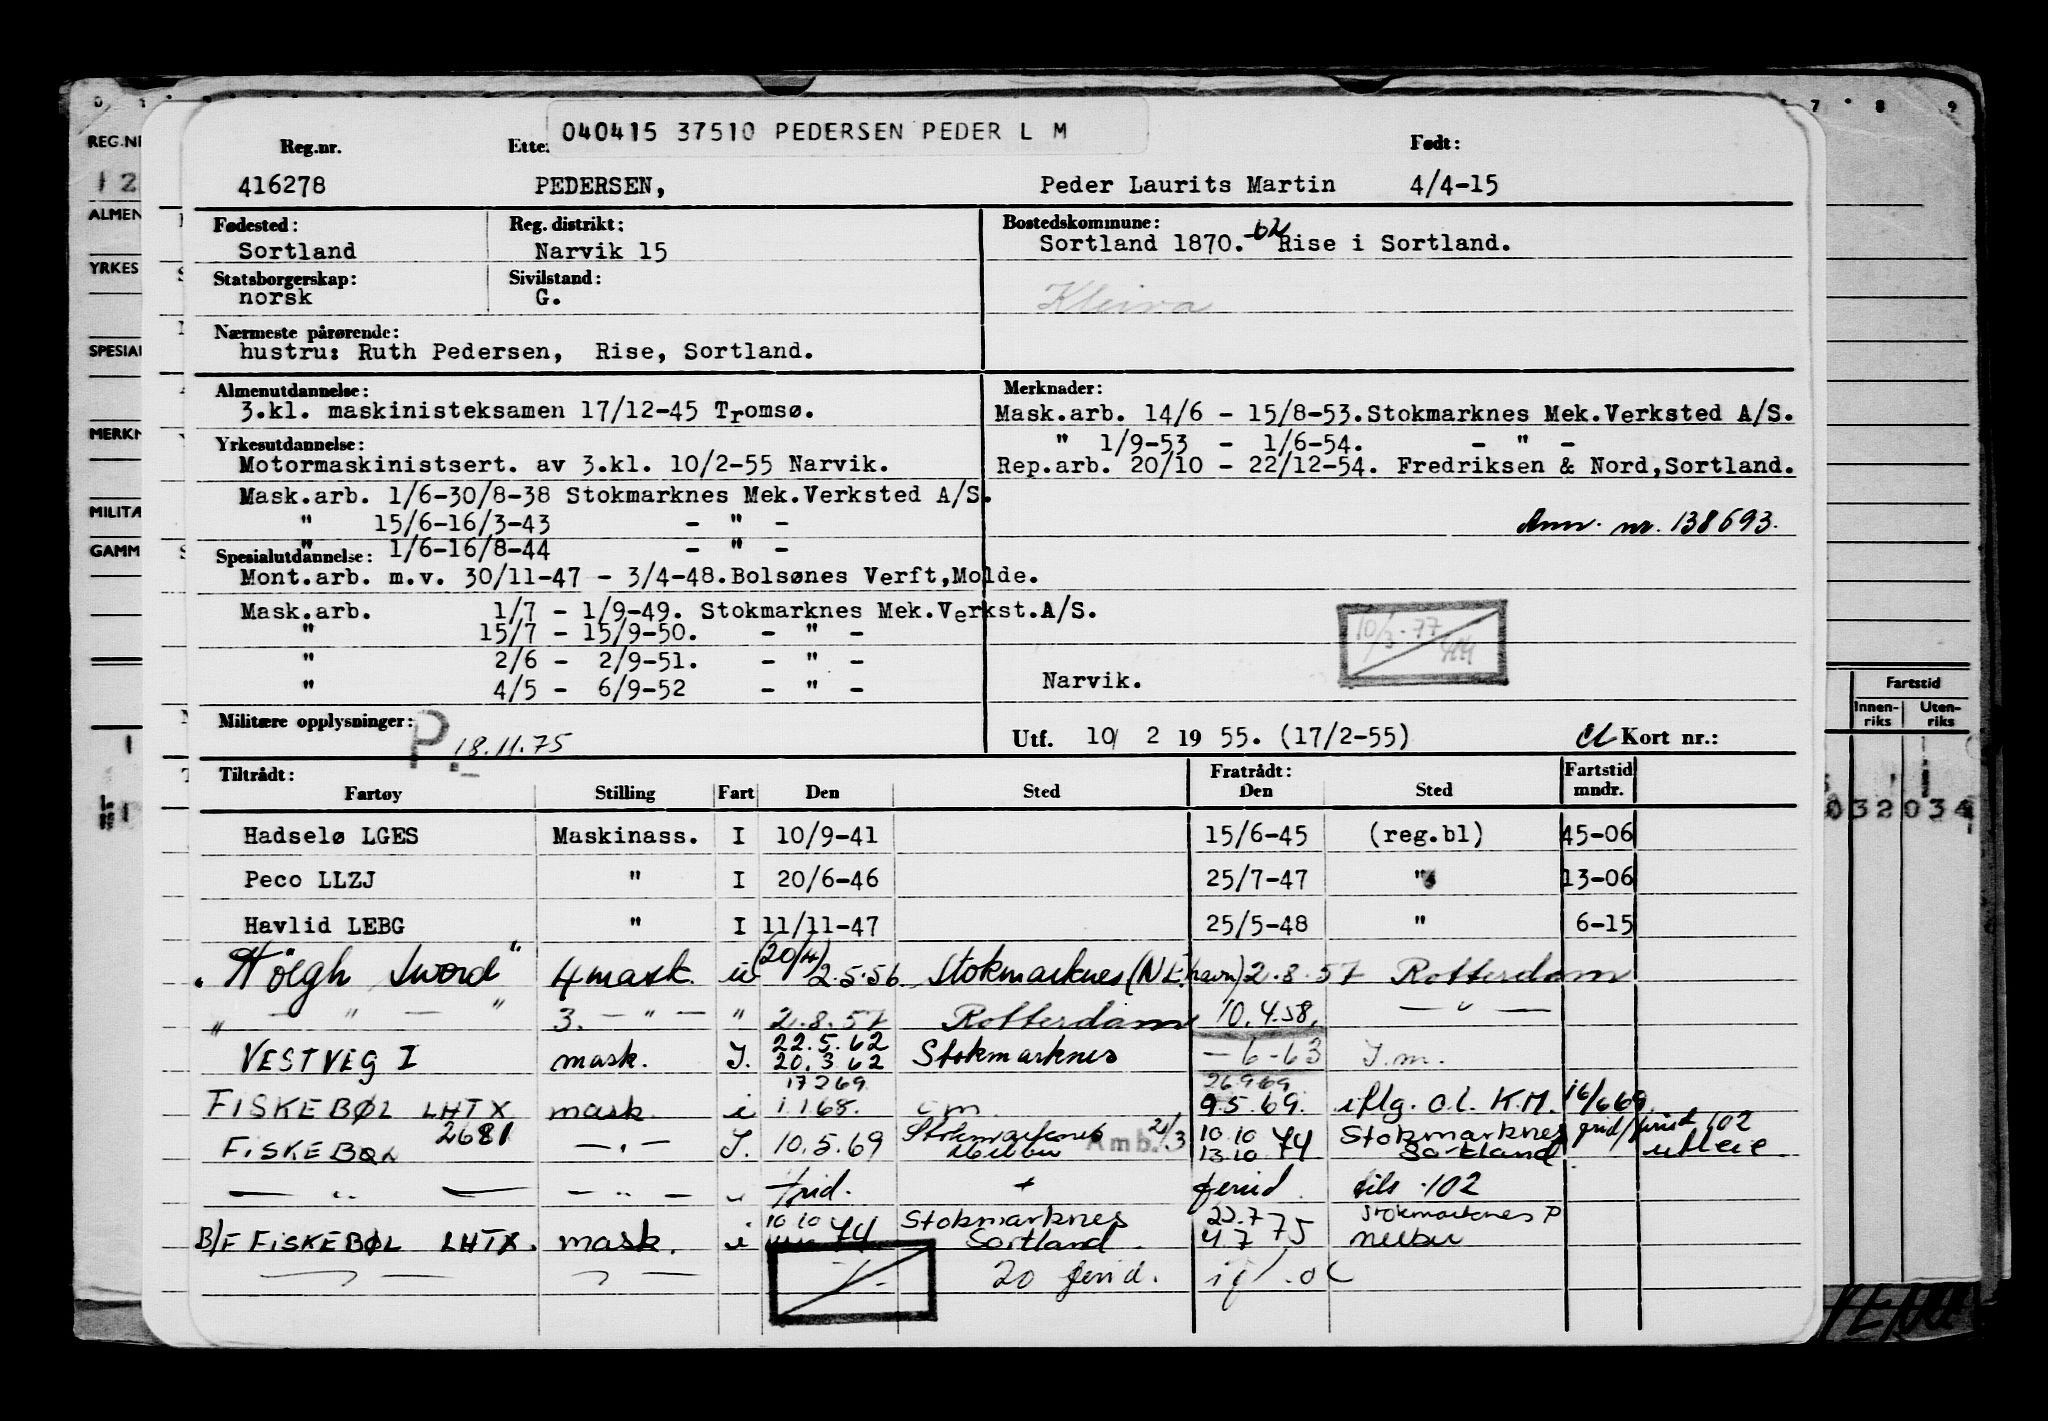 040415 37510 PEDERSEN PEDER L M
Reg.nr. Født:
416278 PEDERSEN, Peder Laurits Martin 4/4-15
Fødested: Reg. distrikt: Bostedskommune:
Sortland Narvik 15 Sortland 1870. Rise i Sortland.
Statsborgerskap: Sivilstand:
norsk G. Kleiva
Nærmeste pårørende:
hustru: Ruth Pedersen, Rise, Sortland.
Almenutdannelse: Merknader:
3.kl. maskinisteksamen 17/12-45 Tromsø. Mask.arb. 14/6 - 15/8-53. Stokmarknes Mek.Verksted A/S.
Yrkesutdannelse: " 1/9-53 - 1/6-54. - " -
Motormaskinistsert. av 3.kl. 10/2-55 Narvik. Rep.arb. 20/10 - 22/12-54. Fredriksen & Nord,Sortland.
Mask.arb. 1/6-30/8-38 Stokmarknes Mek.Verksted A/S.
" 15/6-16/3-43 - " - nr. 138693.
" 1/6-16/8-44 - " -
Spesialutdannelse:
Mont.arb. m.v. 30/11-47 - 3/4-48.Bolsønes Verft,Molde.
Mask.arb. 1/7 - 1/9-49. Stokmarknes Mek.Verkst.A/S.
" 15/7 - 15/9-50. - " - 10/3-77
" 2/6 - 2/9-51. - " -
" 4/5 - 6/9-52 - " - Narvik.
Militære opplysninger: P. 18.11.75 Utf. 10/ 2 19 55. (17/2-55) Kort nr.:
Tiltrådt: Fratrådt: Fartstid
Fartøy Stilling Fart Den Sted Den Sted mndr.
Hadselø LGES Maskinass. I 10/9-41 15/6-45 (reg.bl) 45-06
Peco LLZJ " I 20/6-46 25/7-47 " 13-06
Havlid LEBG " I 11/11-47 25/5-48 " 6-15
"Höegh Sword" 4 mask. u (20/4) 2.5.56 Stokmarknes 2.8.57 Rotterdam
" — " — " 3. — " — " 2.8.57 Rotterdam 10.4.58. — " —
VESTVEG I mask. I. 22.5.62 20.3.62 Stokmarknes — 6-63 I.m.
FISKEBØL LHTX mask. i 17269 1.1.68. 26969 9.5.69. iflg. o.l. K.M. 16/669
FISKEBØL 2681 — " — I. 10.5.69 Stokmarknes Melbu Amb. 2/3 10 10 13 10 74 Stokmarknes Sortland 102 utleie
— " — — " — " frid. + ferid tils 102
B/F FISKEBØL LHTX. mask. i 10 10 74 Stokmarknes Sortland 23.7 4.7 75 Stokmarknes P Melbu
20 ferid.
REG.NR
12
ALMEN
YRKES
SPESIAL
MERKN
MILITÆ
GAMM
7 8 9
Fartstid
Innen-riks Uten-riks
032 034